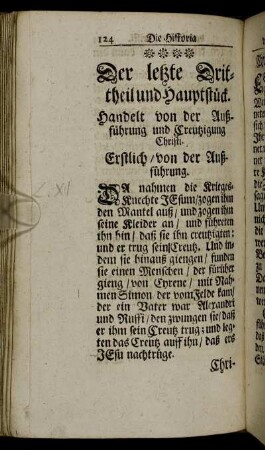 124 Die Historia
Der letzte Drit-
theil und Hauptstück.
Handelt von der Auß-
führung und Creutzigung
Christi.
Erstlich / von der Auß-
führung.
DA nahmen die Krieges-
Knechte JEsum / zogen ihn
den Mantel auß / und zogen ihn
seine Kleider an / und führeten
ihn hin / daß sie ihn creutzigten:
und er trug sein Creutz. Und in-
dem sie hinauß giengen / funden
sie einen Menschen / der fürüher
gieng / von Cyrene / mit Nah-
men Simon, der vom Felde kam /
der ein Vater war Alexandri
und Ruffi / den zwungen sie / daß
er ihm sein Creutz trug: und leg-
ten das Creutz auff ihn / daß ers
JEsu nachtrüge.
Chri-